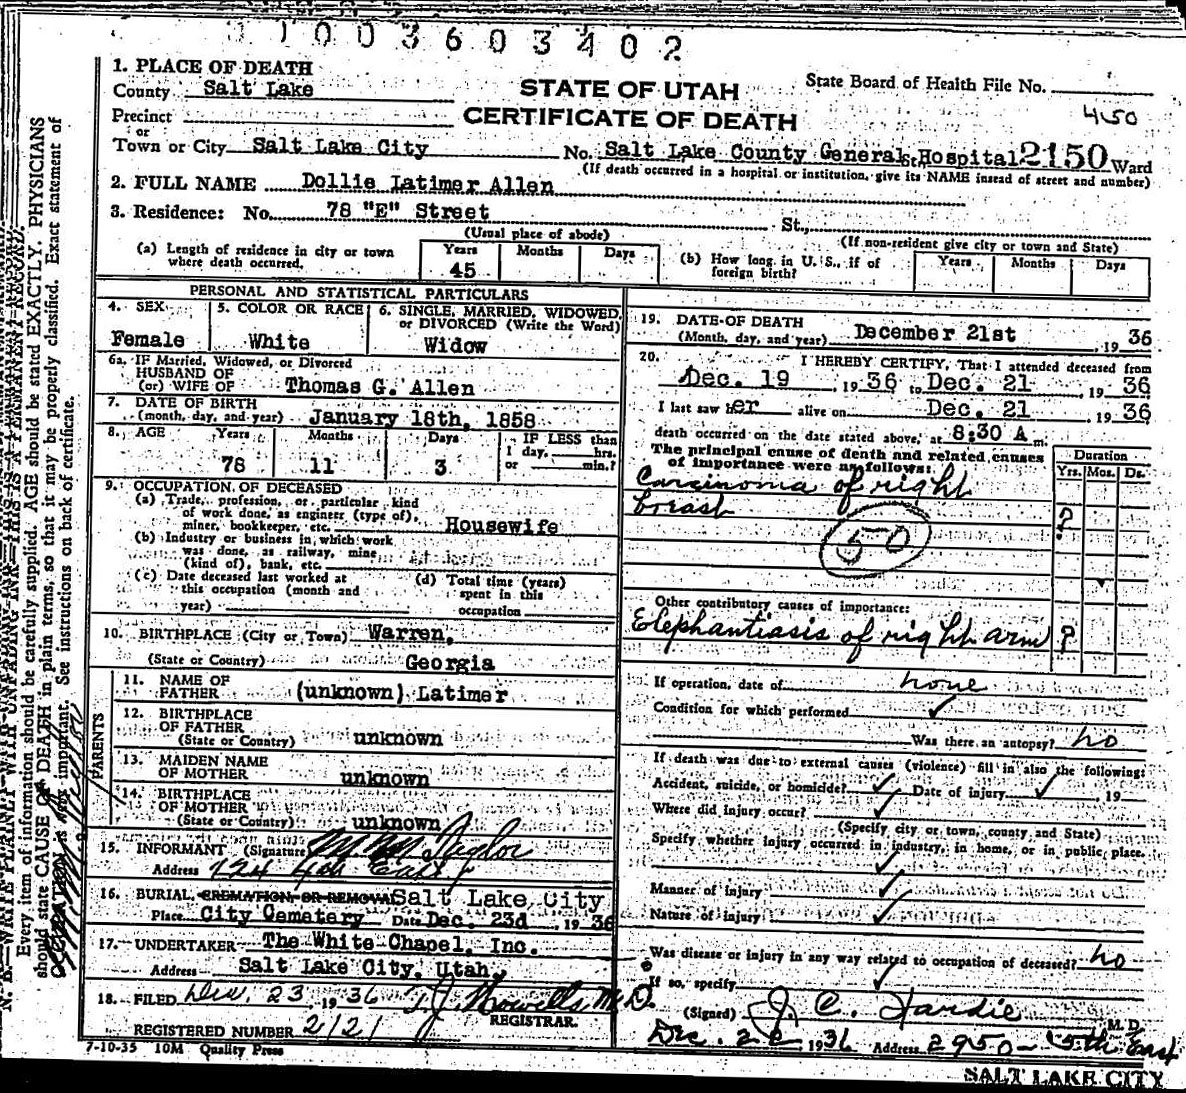 1003603402
1. PLACE OF DEATH
County Salt Lake
STATE OF UTAH
State Board of Health File No.
Precinct
CERTIFICATE OF DEATH
450
or
Town or City Salt Lake City No. Salt Lake County General St. Hospital 2150 Ward
(If death occurred in a hospital or institution, give its NAME instead of street and number)
2. FULL NAME Dollie Latimer Allen
3. Residence: No. 78 "E" Street St.,
(Usual place of abode)
(If non-resident give city or town and State)
(a) Length of residence in city or town where death occurred.
Years Months Days
45
(b) How long in U. S., if of foreign birth?
Years Months Days
PERSONAL AND STATISTICAL PARTICULARS
4. SEX
Female
5. COLOR OR RACE
White
6. SINGLE, MARRIED, WIDOWED, or DIVORCED (Write the Word)
Widow
6a. IF Married, Widowed, or Divorced
HUSBAND OF
(or) WIFE OF Thomas G. Allen
7. DATE OF BIRTH
(month, day, and year) January 18th, 1858
8. AGE Years Months Days IF LESS than
1 day, hrs.
or min.?
78 11 3
9. OCCUPATION OF DECEASED
(a) Trade, profession, or particular kind
of work done, as engineer (type of),
miner, bookkeeper, etc. Housewife
(b) Industry or business in which work
was done, as railway, mine
(kind of), bank, etc.
(c) Date deceased last worked at
this occupation (month and
year)
(d) Total time (years)
spent in this
occupation
10. BIRTHPLACE (City or Town) Warren,
(State or Country) Georgia
PARENTS
11. NAME OF
FATHER (unknown) Latimer
12. BIRTHPLACE
OF FATHER
(State or Country) unknown
13. MAIDEN NAME
OF MOTHER unknown
14. BIRTHPLACE
OF MOTHER
(State or Country) unknown
15. INFORMANT (Signature)
Address 124 4th East
16. BURIAL, CREMATION OR REMOVAL Salt Lake City
Place City Cemetery Date Dec. 23d, 1936
17. UNDERTAKER The White Chapel, Inc.
Address Salt Lake City, Utah,
18. FILED Dec. 23 1936 T. J. Howells M.D.
REGISTRAR.
REGISTERED NUMBER 2121
7-10-35 10M Quality Press
19. DATE OF DEATH
(Month, day, and year) December 21st, 1936
20. I HEREBY CERTIFY, That I attended deceased from
Dec. 19, 1936 to Dec. 21, 1936
I last saw her alive on Dec. 21, 1936
death occurred on the date stated above, at 8:30 A m.
The principal cause of death and related causes
of importance were as follows:
Duration
Yrs. Mos. Ds.
Carcinoma of right
breast ?
50
Other contributory causes of importance:
Elephantiasis of right arm ?
If operation, date of none
Condition for which performed
Was there an autopsy? no
If death was due to external causes (violence) fill in also the following:
Accident, suicide, or homicide? Date of injury , 19
Where did injury occur?
(Specify city or town, county and State)
Specify whether injury occurred in industry, in home, or in public place.
Manner of injury
Nature of injury
Was disease or injury in any way related to occupation of deceased? no
If so, specify
(Signed) J. C. Hardie M. D.
Dec. 22 1936 Address 2950- 5th East
SALT LAKE CITY
N. B.—WRITE PLAINLY WITH UNFADING INK—THIS IS A PERMANENT RECORD.
Every item of information should be carefully supplied. AGE should be stated EXACTLY. PHYSICIANS
should state CAUSE OF DEATH in plain terms, so that it may be properly classified. Exact statement of
OCCUPATION is very important. See instructions on back of certificate.